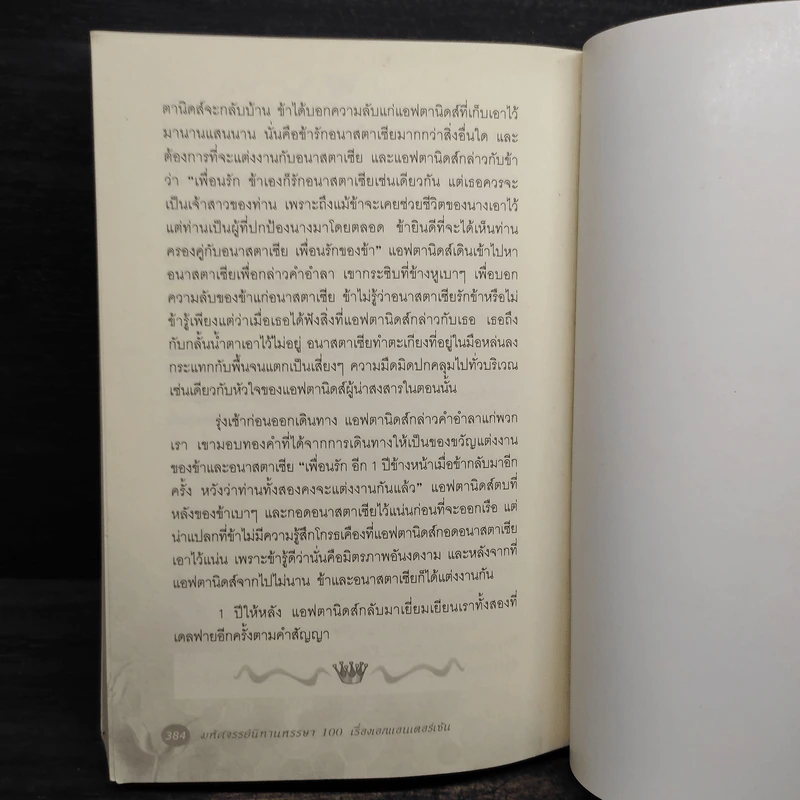 ตานิดส์จะกลับบ้าน ข้าได้บอกความลับแก่แอฟตานิดส์ที่เก็บเอาไว้
มานานแสนนาน นั่นคือข้ารักอนาสตาเซียมากกว่าสิ่งอื่นใด และ
ต้องการที่จะแต่งงานกับอนาสตาเซีย และแอฟตานิดส์กล่าวกับข้า
ว่า “เพื่อนรัก ข้าเองก็รักอนาสตาเซียเช่นเดียวกัน แต่เธอควรจะ
เป็นเจ้าสาวของท่าน เพราะถึงแม้ข้าจะเคยช่วยชีวิตของนางเอาไว้
แต่ท่านเป็นผู้ที่ปกป้องนางมาโดยตลอด ข้ายินดีที่จะได้เห็นท่าน
ครองคู่กับอนาสตาเซีย เพื่อนรักของข้า” แอฟตานิดส์เดินเข้าไปหา
อนาสตาเซียเพื่อกล่าวคำอำลา เขากระซิบที่ข้างหูเบาๆ เพื่อบอก
ความลับของข้าแก่อนาสตาเซีย ข้าไม่รู้ว่าอนาสตาเซียรักข้าหรือไม่
ข้ารู้เพียงแต่ว่าเมื่อเธอได้ฟังสิ่งที่แอฟตานิดส์กล่าวกับเธอ เธอถึง
กับกลั้นน้ำตาเอาไว้ไม่อยู่ อนาสตาเซียทำตะเกียงที่อยู่ในมือหล่นลง
กระแทกกับพื้นจนแตกเป็นเสี่ยงๆ ความมืดมิดปกคลุมไปทั่วบริเวณ
เช่นเดียวกับหัวใจของแอฟตานิดส์ผู้น่าสงสารในตอนนั้น
รุ่งเช้าก่อนออกเดินทาง แอฟตานิดส์กล่าวคำอำลาแก่พวก
เรา เขามอบทองคำที่ได้จากการเดินทางให้เป็นของขวัญแต่งงาน
ของข้าและอนาสตาเซีย “เพื่อนรัก อีก 1 ปีข้างหน้าเมื่อข้ากลับมาอีก
ครั้ง หวังว่าท่านทั้งสองคงจะแต่งงานกันแล้ว” แอฟตานิดส์ตบที่
หลังของข้าเบาๆ และกอดอนาสตาเซียไว้แน่นก่อนที่จะออกเรือ แต่
น่าแปลกที่ข้าไม่มีความรู้สึกโกรธเคืองที่แอฟตานิดส์กอดอนาสตาเซีย
เอาไว้แน่น เพราะข้ารู้ดีว่านั่นคือมิตรภาพอันงดงาม และหลังจากที่
แอฟตานิดส์จากไปไม่นาน ข้าและอนาสตาเซียก็ได้แต่งงานกัน
1 ปีให้หลัง แอฟตานิดส์กลับมาเยี่ยมเยียนเราทั้งสองที่
เดลฟายอีกครั้งตามคำสัญญา
384 มหัศจรรย์นิทานหรรษา 100 เรื่องเอกแอนเดอร์เซ่น